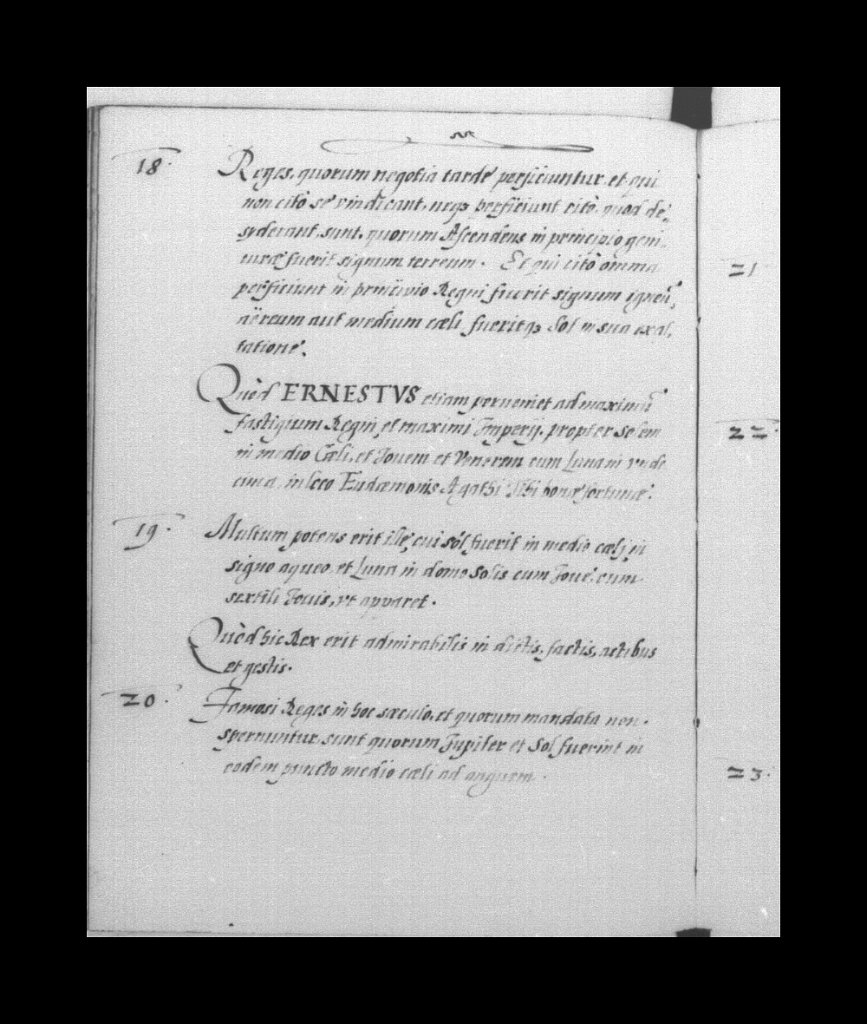 18.
Reges, quorum negotia tardè perficiuntur, et qui
non citò se vindicant, neqꝫ perficiunt citò, quod de,
syderant, sunt, quorum Ascendens in principio geni-
turæ fuerit signum terreum. Et qui citò omnia
perficiunt in principio Regni fuerit signum igneũ,
aëreum aut medium cæli, fueritqꝫ Sol in sua exal,
tatione.
Quòd ERNESTVS etiam perueniet ad maximũ
fastigium Regni, et maximi Imperij, propter Solem
in medio Cæli, et Iouem et Venerem cum Luna in vnde
cima, in loco Eudæmonis Agathi bonæ fortunæ.
19.
Multum potens erit ille, cui Sol fuerit in medio cæli in
signo aqueo, et Luna in domo Solis cum Ioue, cum
sextili Iouis, vt apparet.
Quòd hic Rex erit admirabilis in dictis, factis, actibus
et gestis.
20.
Famosi Reges in hoc sæculo, et quorum mandata non
spernuntur, sunt quorum Iupiter et Sol fuerint in
eodem puncto medio cæli ad anguem.
21
22
23.